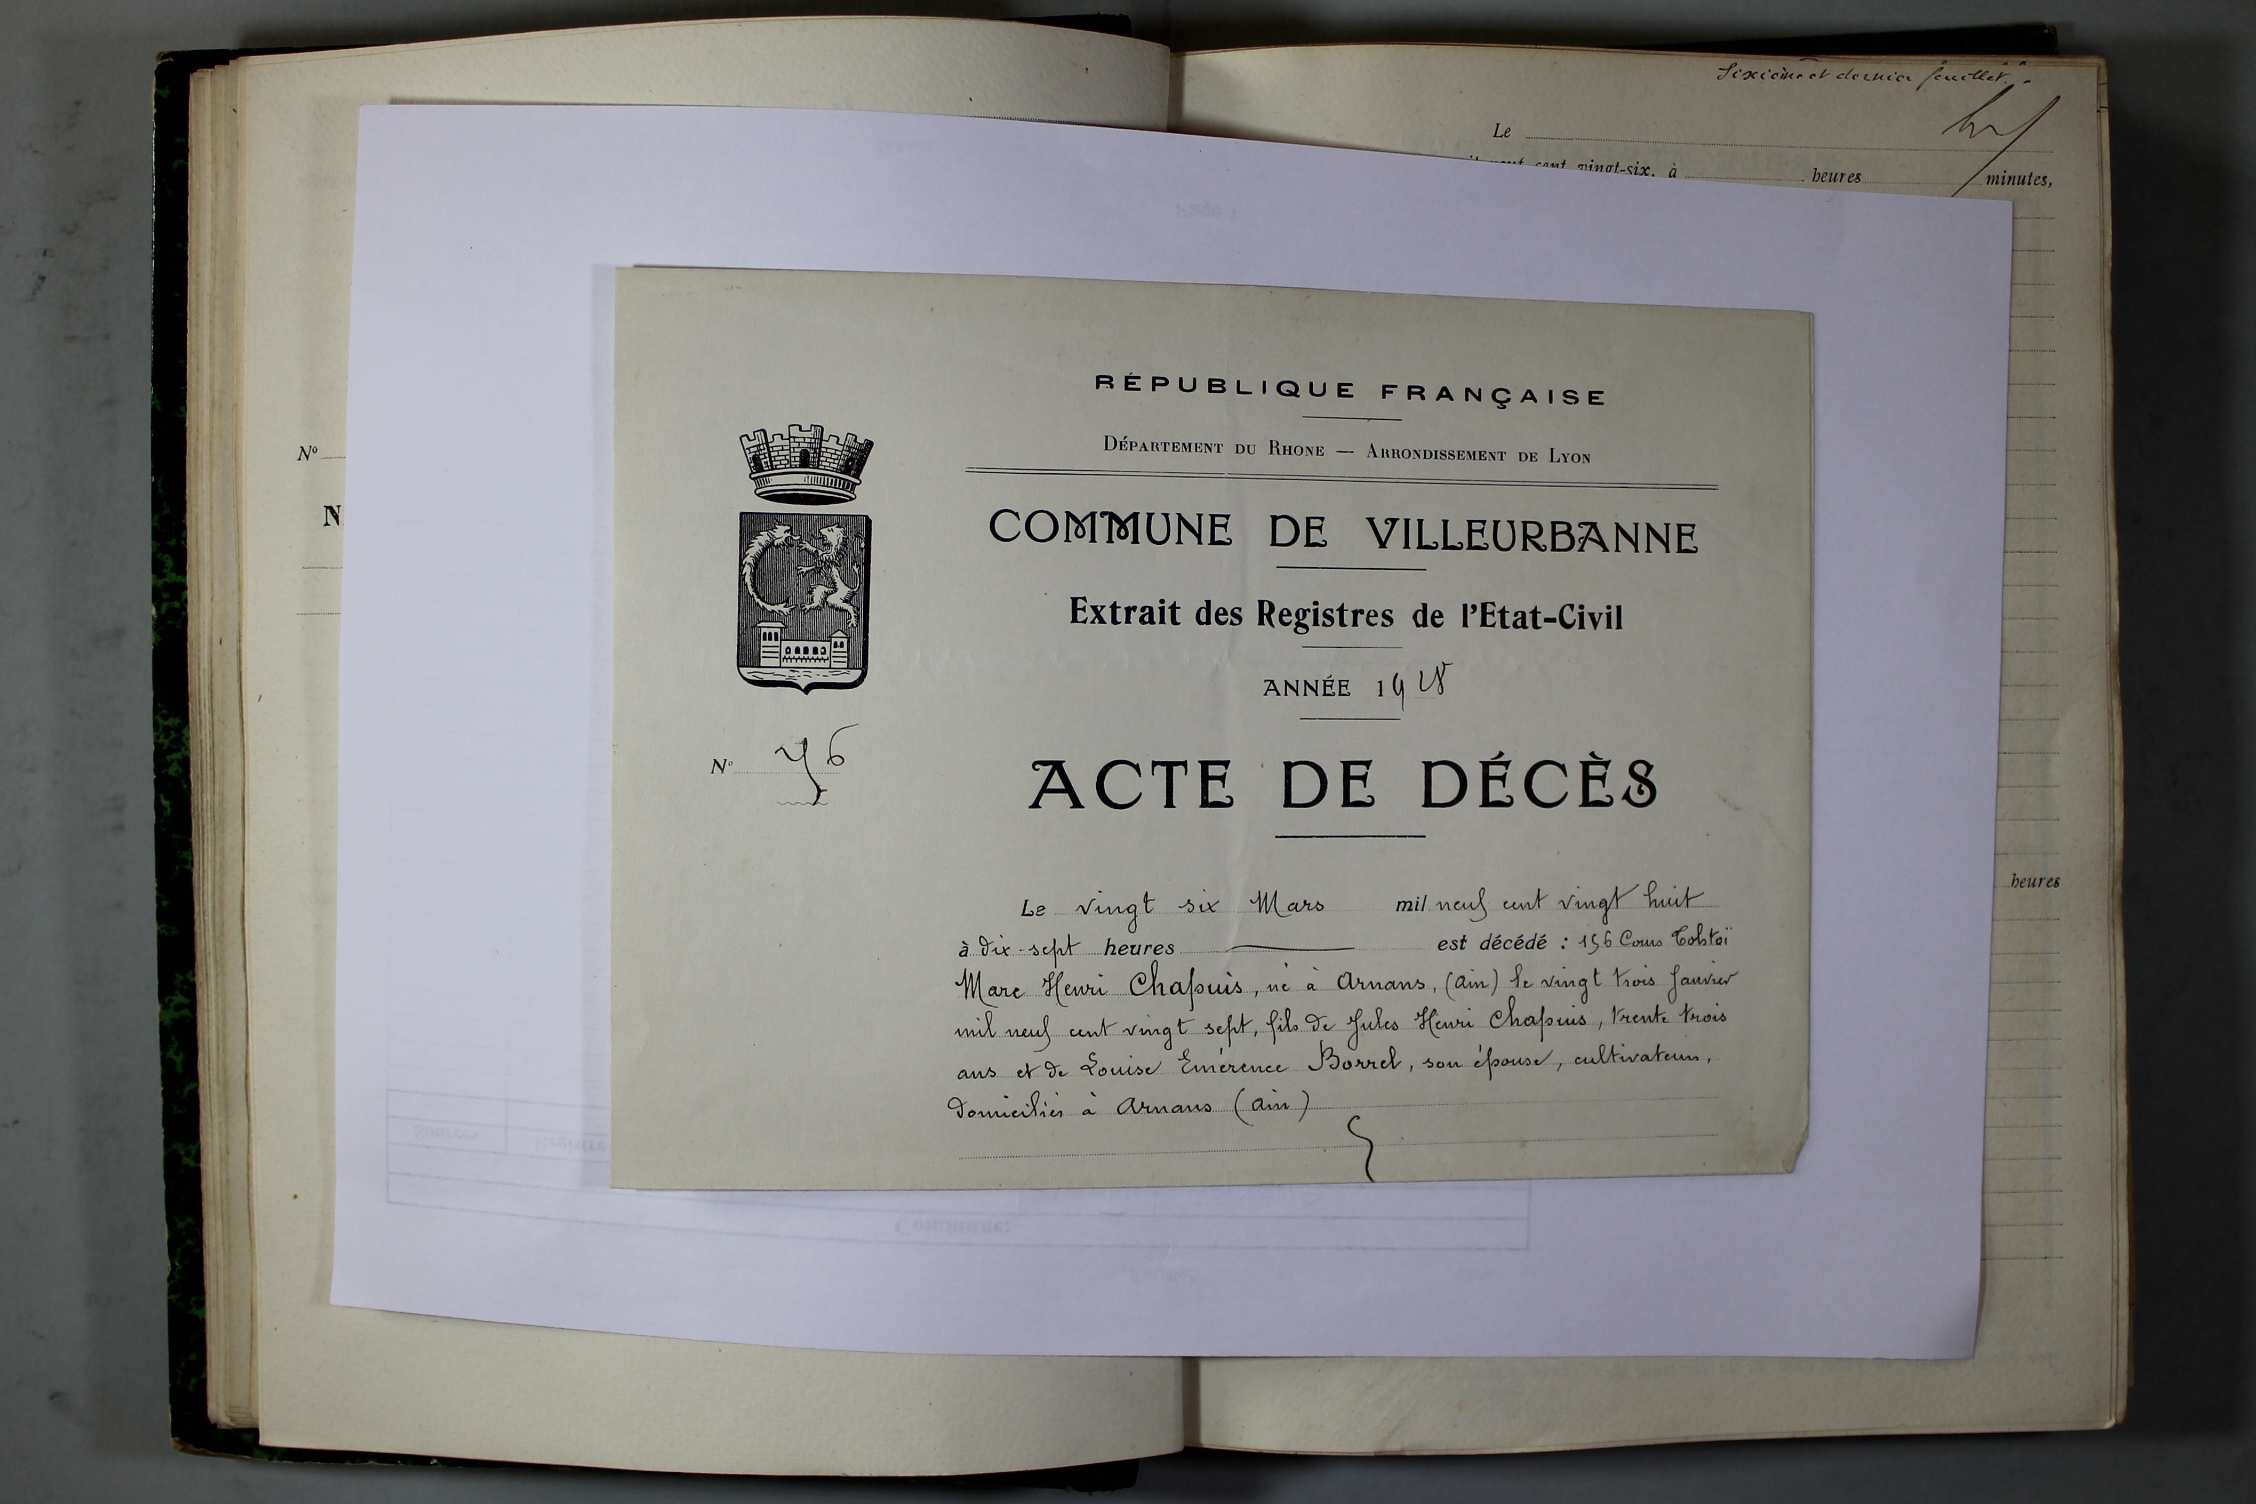 Sixième et dernier feuillet.
Le
vingt-six, à heures minutes,
Nº
N
heures
RÉPUBLIQUE FRANÇAISE
DÉPARTEMENT DU RHONE — ARRONDISSEMENT DE LYON
COMMUNE DE VILLEURBANNE
Extrait des Registres de l'Etat-Civil
ANNÉE 1928
Nº 76
ACTE DE DÉCÈS
Le vingt six Mars mil neuf cent vingt huit
à dix-sept heures est décédé : 156 Cours Tolstoï
Marc Henri Chapuis, né à Arnans, (Ain) le vingt trois Janvier
mil neuf cent vingt sept, fils de Jules Henri Chapuis, trente trois
ans et de Louise Emérence Borrel, son épouse, cultivateurs,
domiciliés à Arnans (Ain)